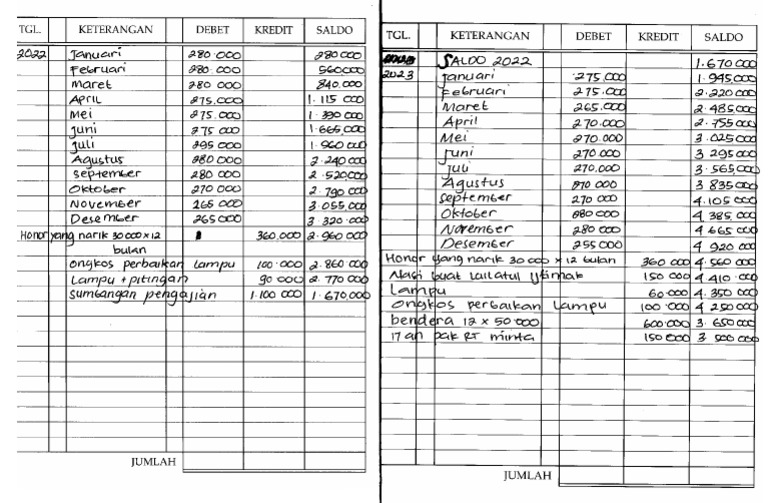 TGL. KETERANGAN DEBET KREDIT SALDO
2022 Januari 280.000 280.000
Februari 280.000 560.000
Maret 280 000 840.000
April 275.000 1.115 000
Mei 275.000 1.390 000
Juni 275 000 1.665.000
Juli 295 000 1.960 000
Agustus 280 000 2.240 000
September 280 000 2.520.000
Oktober 270 000 2.790 000
November 265 000 3.055.000
Desember 265 000 3.320.000
Honor yang narik 30 000 x 12 360.000 2.960 000
bulan
ongkos perbaikan lampu 100.000 2.860 000
Lampu + pitingan 90 000 2.770 000
Sumbangan pengajian 1.100 000 1.670.000
JUMLAH
TGL. KETERANGAN DEBET KREDIT SALDO
SALDO 2022 1.670 000
2023 Januari 275.000 1.945.000
Februari 275.000 2.220 000
Maret 265.000 2.485 000
April 270.000 2.755 000
Mei 270.000 3.025 000
Juni 270.000 3 295 000
Juli 270.000 3.565.000
Agustus 270 000 3 835 000
September 270 000 4.105 000
Oktober 280 000 4 385.000
November 280 000 4 665 000
Desember 255 000 4 920 000
Honor yang narik 30 000 x 12 bulan 360 000 4.560 000
Nasi buat Lailatul Ijtimak 150 000 4 410.000
Lampu 60.000 4.350 000
ongkos perbaikan Lampu 100 000 4 250 000
bendera 12 x 50.000 600.000 3.650 000
17 an pak RT minta 150 000 3 500 000
JUMLAH